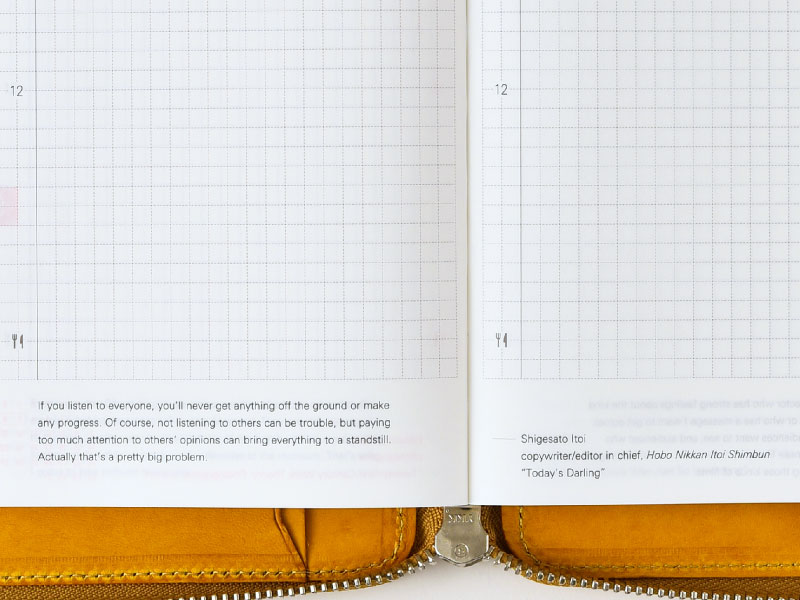 12
12
If you listen to everyone, you'll never get anything off the ground or make
any progress. Of course, not listening to others can be trouble, but paying
too much attention to others' opinions can bring everything to a standstill.
Actually that's a pretty big problem.
Shigesato Itoi
copywriter/editor in chief, Hobo Nikkan Itoi Shimbun
"Today's Darling"
YKK